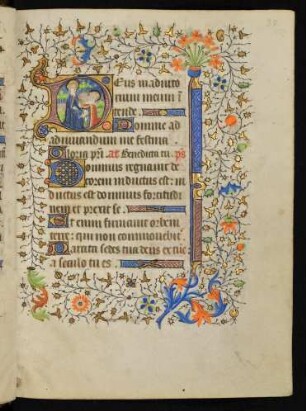 Deus in adiuto
rium meum ī
tende. Domine ad
adiuvandum me festina
Gloria pri. añ Benedicta tu. ps
Dominus regnavit de
corem indutus est: in
dutus est dominus fortitudi
nem et precinxit se.
Et enim firmavit orbem
terre: qui non commovebit᷑
Parata sedes tua deus ex tūc
a seculo tu es